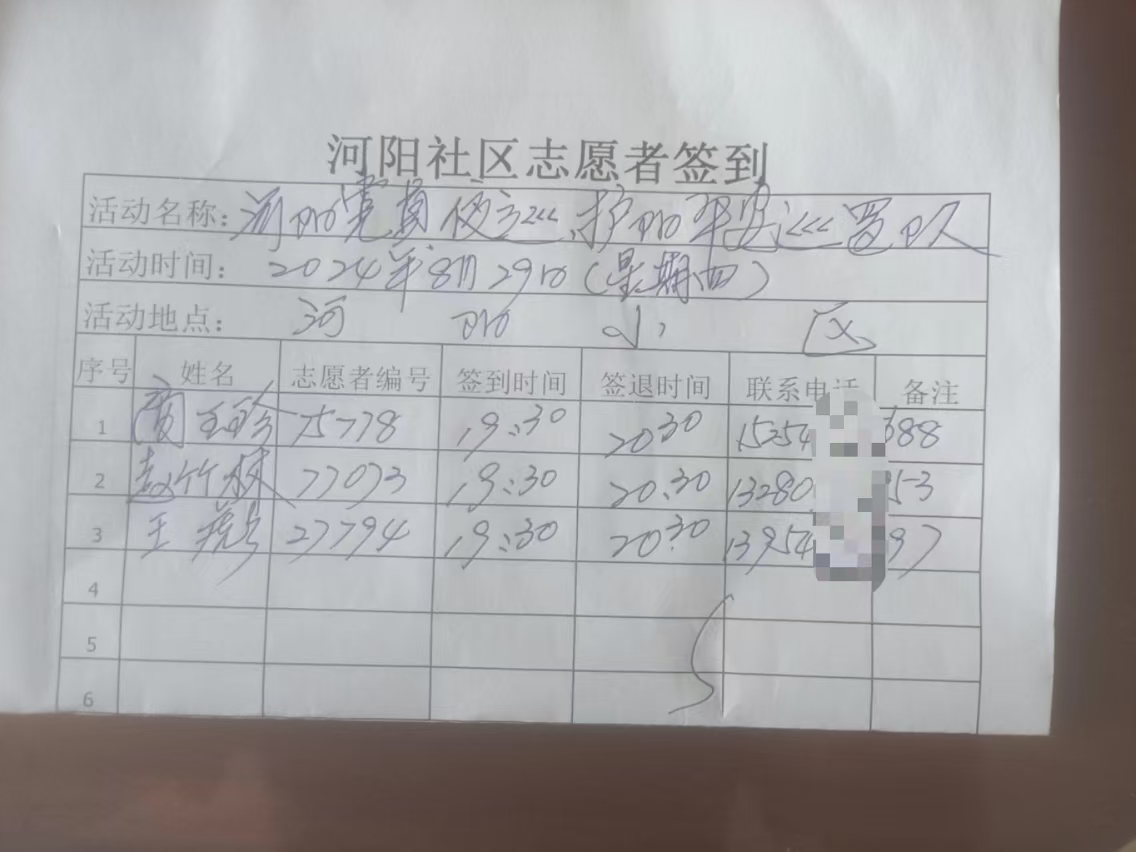 河阳社区志愿者签到
活动名称：河阳党员夜巡护阳平安巡逻队
活动时间：2024年8月29日(星期四)
活动地点：河阳小区
序号 姓名 志愿者编号 签到时间 签退时间 联系电话 备注
1 75778 19:30 20:30 15254 688
2 赵竹林 77073 19:30 20:30 13280 53
3 王 27794 19:30 20:30 13954 97
4
5
6